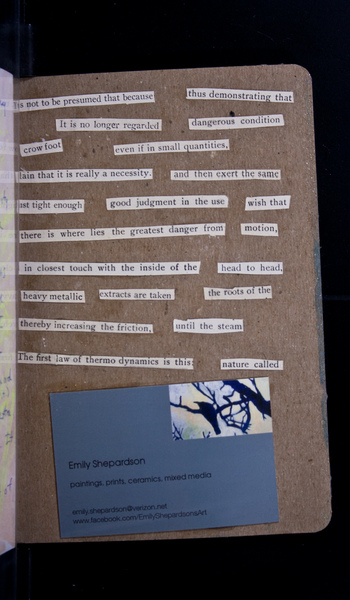 is not to be presumed that because thus demonstrating that
It is no longer regarded dangerous condition
crow foot even if in small quantities,
tain that it is really a necessity. and then exert the same
just tight enough good judgment in the use wish that
there is where lies the greatest danger from motion,
in closest touch with the inside of the head to head,
heavy metallic extracts are taken the roots of the
thereby increasing the friction, until the steam
The first law of thermo dynamics is this: nature called
Emily Shepardson
paintings, prints, ceramics, mixed media
emily.shepardson@verizon.net
www.facebook.com/EmilyShepardsonsArt